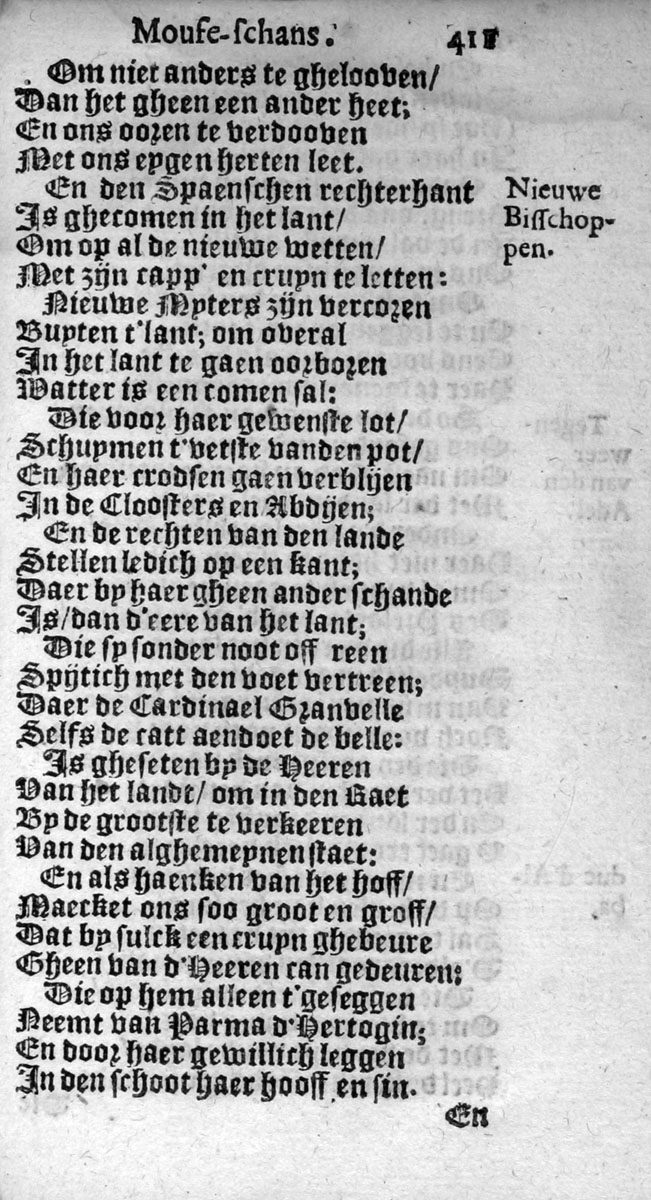 Mouse-schans. 411
Om niet anders te ghelooven/
Dan het gheen een ander heet;
En ons ooren te verdooven
Met ons eygen herten leet.
En den Spaenschen rechterhant
Is ghecomen in het lant/
Om op al de nieuwe wetten/
Met zijn capp' en cruyn te letten:
Nieuwe Myters zijn vercoren
Buyten t'lant; om overal
In het lant te gaen oorboren
Watter is een comen sal:
Die voor haer gewenste lot/
Schuymen t'vetste vanden pot/
En haer crodsen gaen verblijen
In de Cloosters en Abdijen;
En de rechten van den lande
Stellen ledich op een kant;
Daer by haer gheen ander schande
Is/dan d'eere van het lant;
Die sy sonder noot off reen
Spijtich met den voet vertreen;
Daer de Cardinael Granvelle
Selfs de catt aendoet de belle:
Is gheseten by de Heeren
Van het lande/ om in den Raet
By de grootste te verkeeren
Van den alghemeynen staet:
En als haenken van het hoff/
Maecket ons soo groot en groff/
Dat by sulck een cruyn ghebeure
Gheen van d'Heeren can gedeuren:
Die op hem alleen t'geseggen
Neemt van Parma d'Hertogin;
En door haer gewillich leggen
In den schoot haer hooff en sin.
En
Nieuwe
Bisschop-
pen.